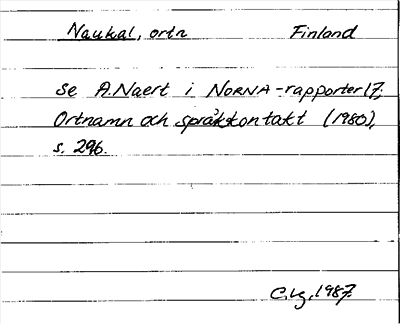 Naukal, ortn Finland
se A. Naert i NORNA-rapporter 17,
Ortnamn och språkkontakt (1980),
s. 296.
C.lg, 1987.